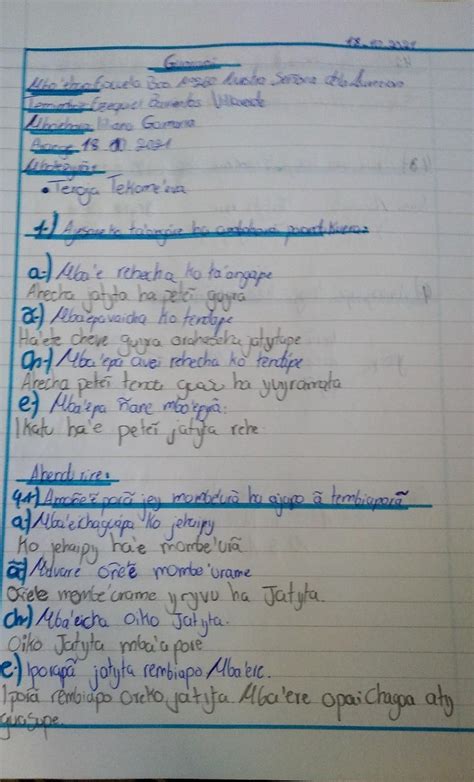 18.10.2021
Guarani
Mbo'ehao Escuela Bas N° Nuestra Señora de la Asuncion
Temimbo'e Ezequiel Villaverde
Mbo'ehara
Arange 18.10.2021
Mbohysýi:
• Teroja Tekome'ẽva
1-) ko ta'anga ha
a-) Mba'e rehecha ko ta'angape
Ahecha jatyta ha peteĩ guyra
ã-) Mbaepavaicha ko tendape
Ha'ete cheve guyra jatytape
Ch-) Mba'epa avei rehecha ko tendipe
Ahecha peteĩ tenda guasu ha yvyramata
e-) Mba'epa Ñane mbo'epyã:
Ikatu ha'e peteĩ jatyta rehe
Ahendu rire:
4+) Amoñe'ẽ porã jey mombe'urã ha ajapo ã tembiaporã
a-) Mba'eichaguápa ko jehaipy
Ko jehaipy ha'e mombe'urã
ã-) Mávare Oñe'ẽ mombe'urame
Oñe'ẽ mombe'urame yryvu ha Jatyta.
ch-) Mba'eicha Oiko Jatyta.
Oiko Jatyta mba'apore
e-) Iporãpa jatyta rembiapo Mba'ere.
Iporã rembiapo Oreko jatyta Mba'ere opaichagua aty
guasupe.